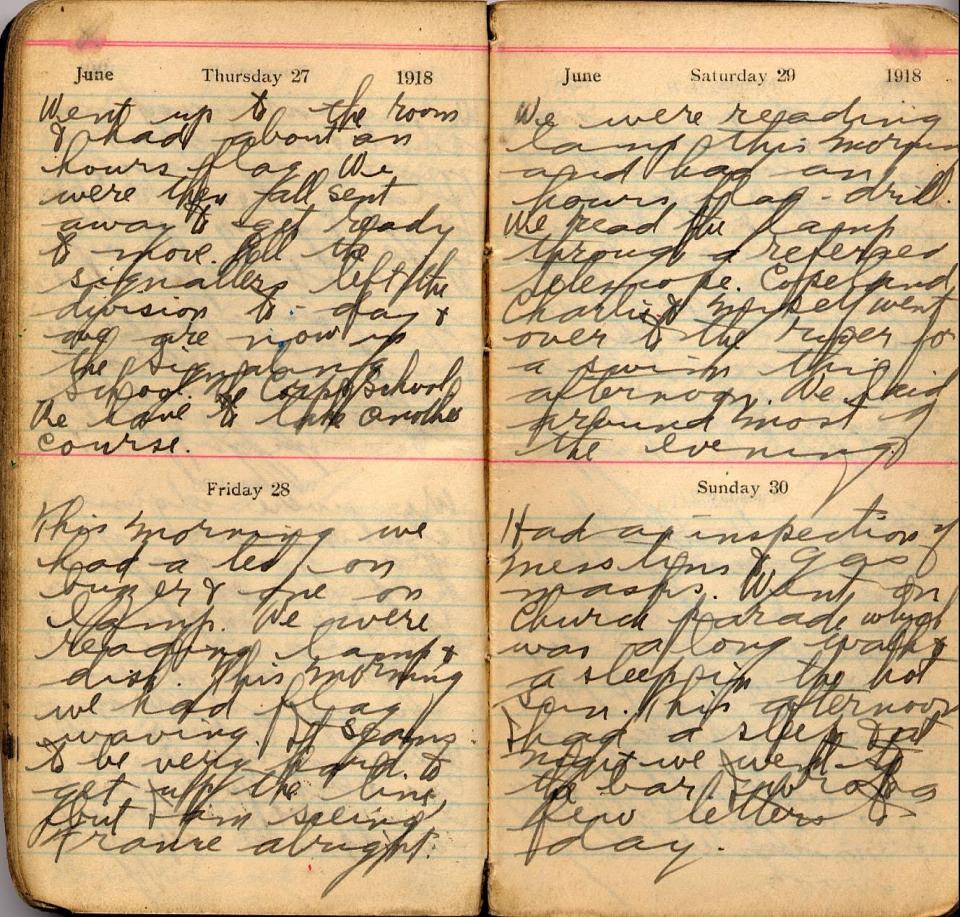 June Thursday 27 1918
Went up to the room
& had about an
hours flag We
were then all sent
away to get ready
to move. All the
signallers left the
division to-day &
we are now in
the signaling
School. Corps School
We have to take another
course.
Friday 28
This morning we
had a test on
buzzer & one on
lamp. We were
reading lamp &
disk. This morning
we had flag
waving. It seams
to be very hard to
get up the line,
but I am seeing
France alright.
June Saturday 29 1918
We were reading
lamp this morning
and had an
hours flag-drill.
We read the lamp
through a reversed
telescope. Copeland,
Charlie & myself went
over to the river for
a swim this
afternoon. We laid
around most of
the evening
Sunday 30
Had an inspection of
mess tins & gas
masks. Went on
Church parade which
was a long walk &
a sleep in the hot
sun. This afternoon
I had a sleep & at
night we went to
the bar I wrote a
few letters to-
day.